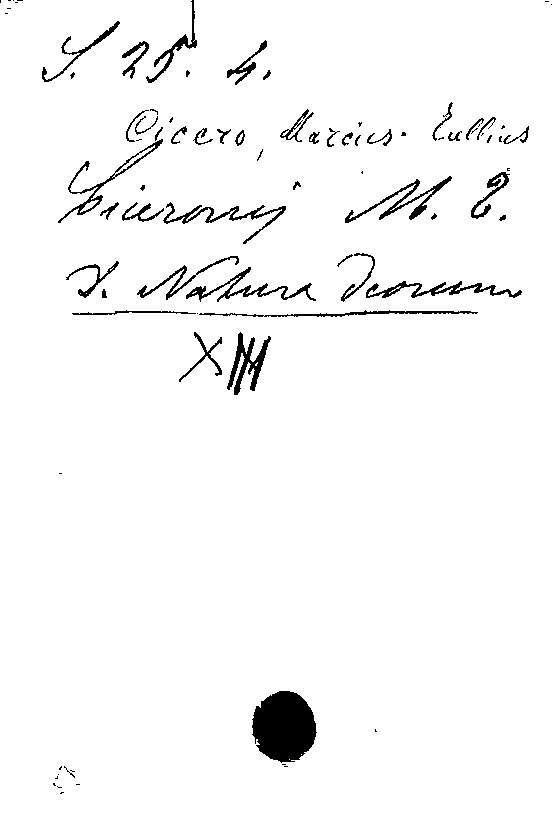 S. 25. 4.
Cicero, Marcius Tullius
Ciceronis M. T.
d. Natura Deorum